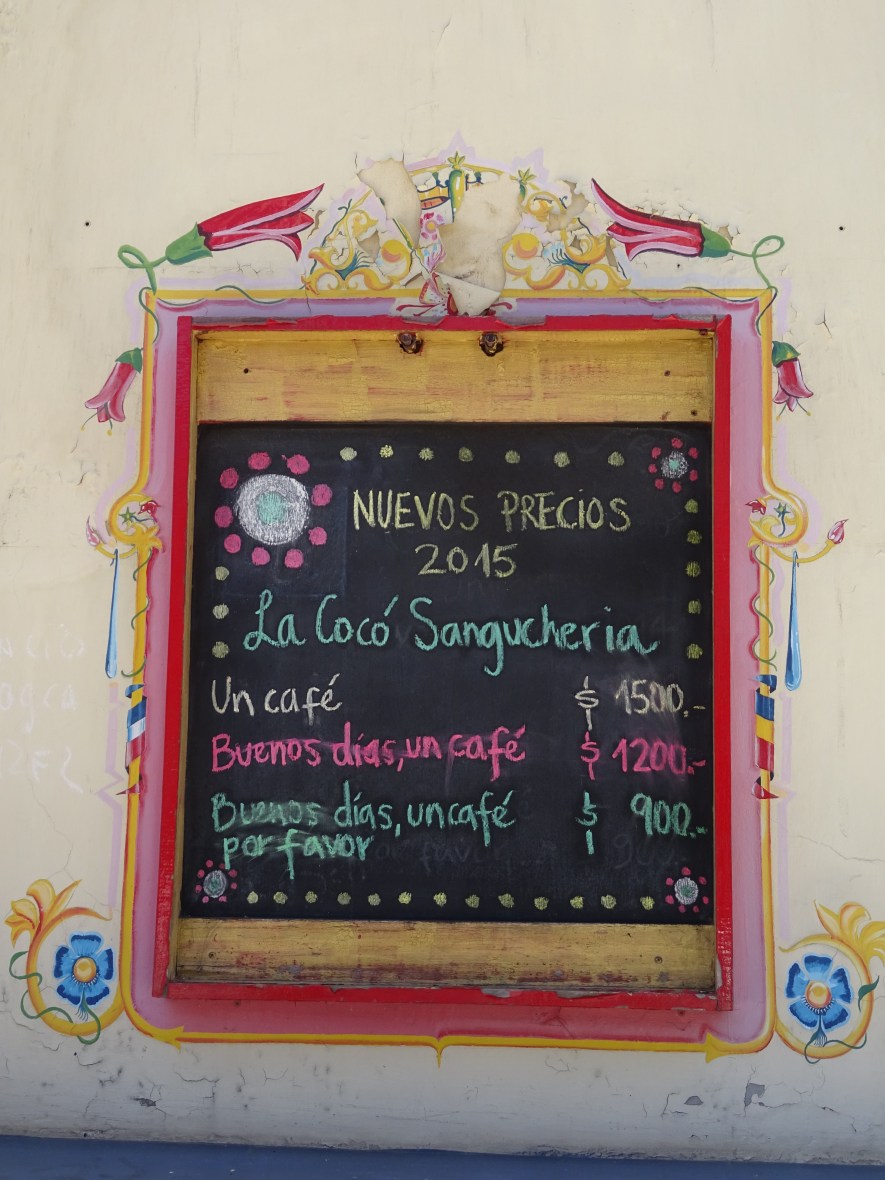 NUEVOS PRECIOS
2015
La Cocó Sangucheria
Un café $ 1500.-
Buenos días, un café $ 1200.-
Buenos días, un café $ 900.-
por favor